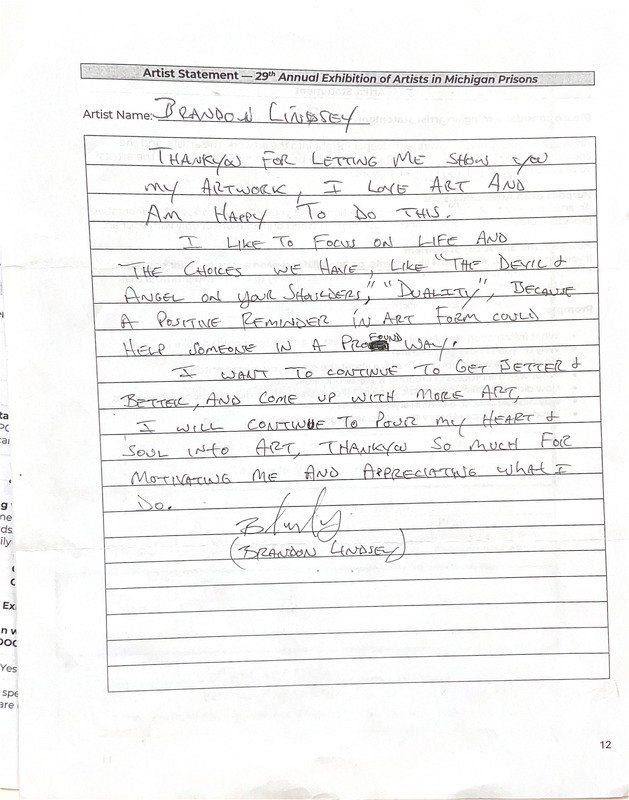 Artist Statement — 29th Annual Exhibition of Artists in Michigan Prisons
Artist Name: BRANDON LINDSEY
THANKYOU FOR LETTING ME SHOW YOU
MY ARTWORK, I LOVE ART AND
AM HAPPY TO DO THIS.
I LIKE TO FOCUS ON LIFE AND
THE CHOICES WE HAVE, LIKE "THE DEVIL &
ANGEL ON YOUR SHOULDERS," "DUALITY", BECAUSE
A POSITIVE REMINDER IN ART FORM COULD
HELP SOMEONE IN A PROFOUND WAY.
I WANT TO CONTINUE TO GET BETTER &
BETTER, AND COME UP WITH MORE ART,
I WILL CONTINUE TO POUR MY HEART &
SOUL INTO ART, THANKYOU SO MUCH FOR
MOTIVATING ME AND APPRECIATING WHAT I
DO.
(BRANDON LINDSEY)
12